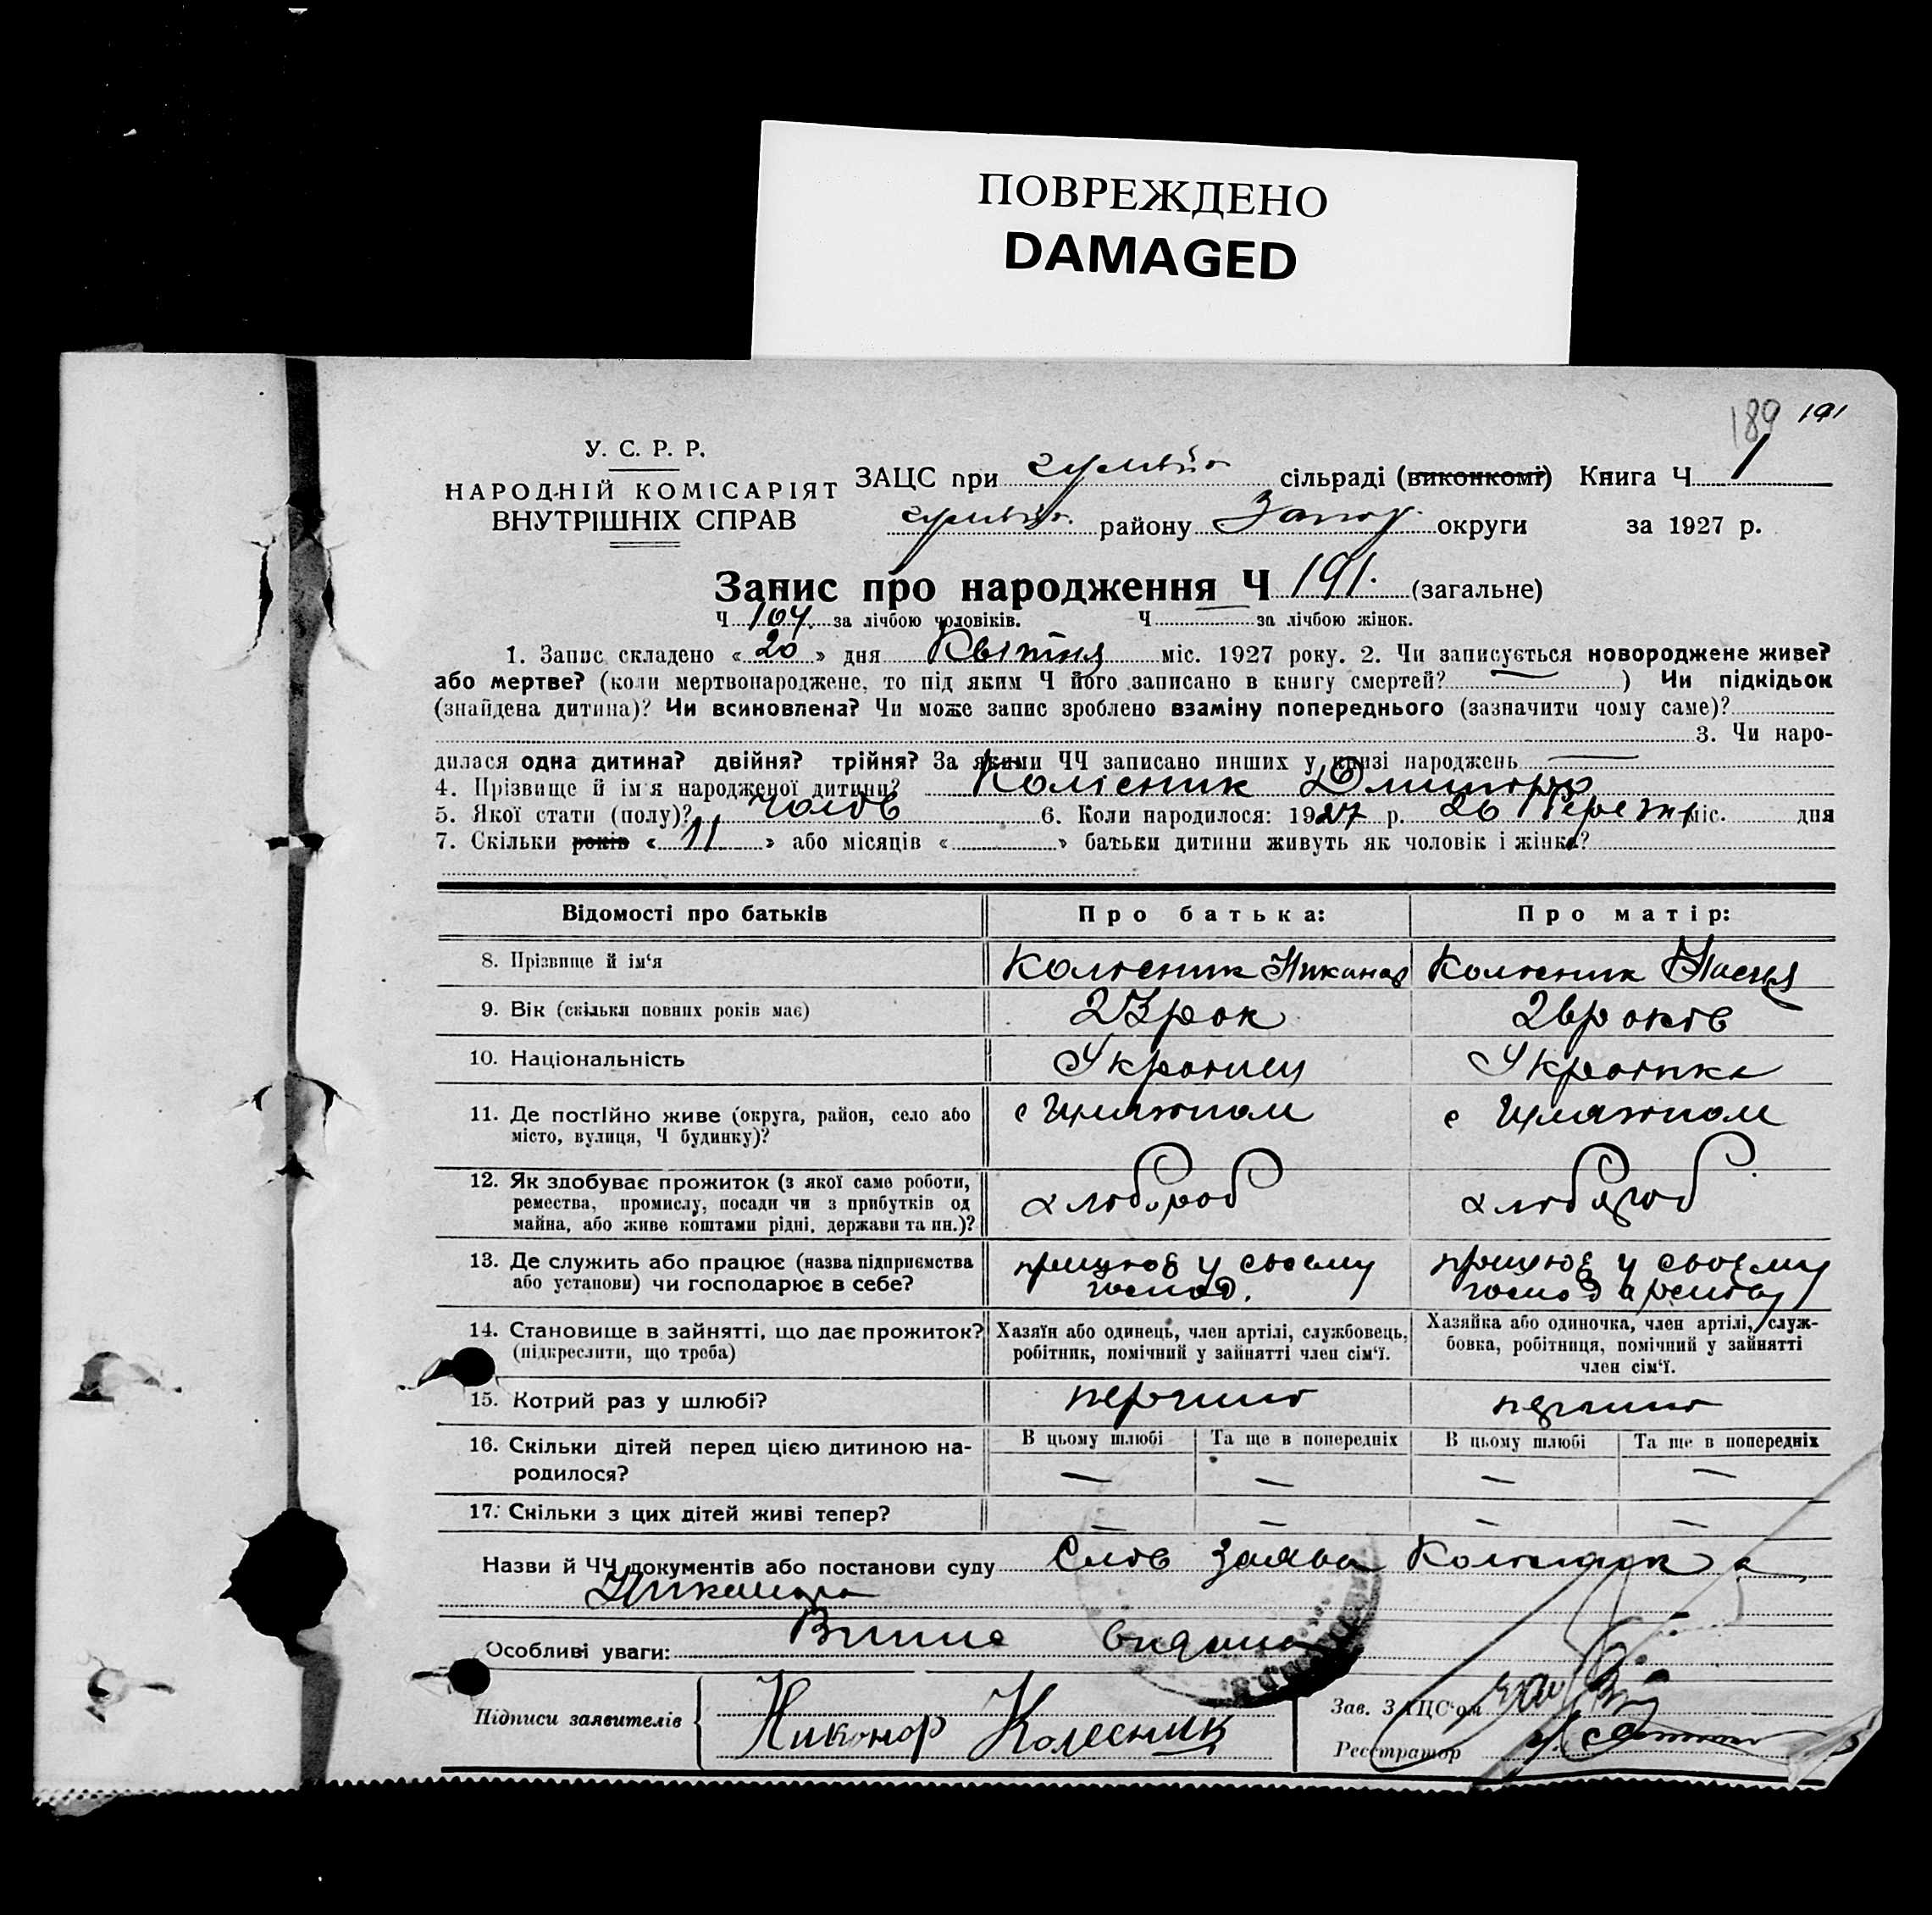 ПОВРЕЖДЕНО
DAMAGED
189 191
У. С. Р. Р.
НАРОДНІЙ КОМІСАРІЯТ
ВНУТРІШНІХ СПРАВ
ЗАЦС при сільраді (виконкомі) Книга Ч 1
району Запор. округи за 1927 р.
Запис про народження Ч 191. (загальне)
Ч 104. за лічбою чоловіків. Ч за лічбою жінок.
1. Запис складено « 20 » дня Квітня міс. 1927 року. 2. Чи записується новороджене живе?
або мертве? (коли мертвонароджене, то під яким Ч його записано в книгу смертей? — ) Чи підкідьок
(знайдена дитина)? Чи всиновлена? Чи може запис зроблено взаміну попереднього (зазначити чому саме)?
3. Чи наро-
дилася одна дитина? двійня? трійня? За якими ЧЧ записано инших у книзі народжень —
4. Прізвище й ім'я народженої дитини? Колісник Дмитро
5. Якої стати (полу)? чолов 6. Коли народилося: 1927 р. 26 Березня міс. дня
7. Скільки років « 11 » або місяців « » батьки дитини живуть як чоловік і жінка?
Відомості про батьків
Про батька:
Про матір:
8. Прізвище й ім'я
Колісник Никанор
Колісник Настя
9. Вік (скільки повних років має)
23 рок
26 років
10. Національність
Українец
Українка
11. Де постійно живе (округа, район, село або
місто, вулиця, Ч будинку)?
с Гуляйполе
с Гуляйполе
12. Як здобуває прожиток (з якої саме роботи,
ремества, промислу, посади чи з прибутків од
майна, або живе коштами рідні, держави та ин.)?
хлібороб
хлібороб
13. Де служить або працює (назва підприємства
або установи) чи господарює в себе?
працює у своєму
господ.
працює у своєму
14. Становище в зайнятті, що дає прожиток?
(підкреслити, що треба)
Хазяїн або одинець, член артілі, службовець,
робітник, помічний у зайнятті член сім'ї.
Хазяйка або одиночка, член артілі, служ-
бовка, робітниця, помічний у зайнятті
член сім'ї.
15. Котрий раз у шлюбі?
перший
перший
16. Скільки дітей перед цією дитиною на-
родилося?
В цьому шлюбі Та ще в попередніх
В цьому шлюбі Та ще в попередніх
— — — —
17. Скільки з цих дітей живі тепер?
— — — —
Назви й ЧЧ документів або постанови суду Слов заява Колісника
Никанора
Особливі уваги:
Підписи заявителів
Никонор Колесник
Зав. ЗАЦС'ом
Реєстратор